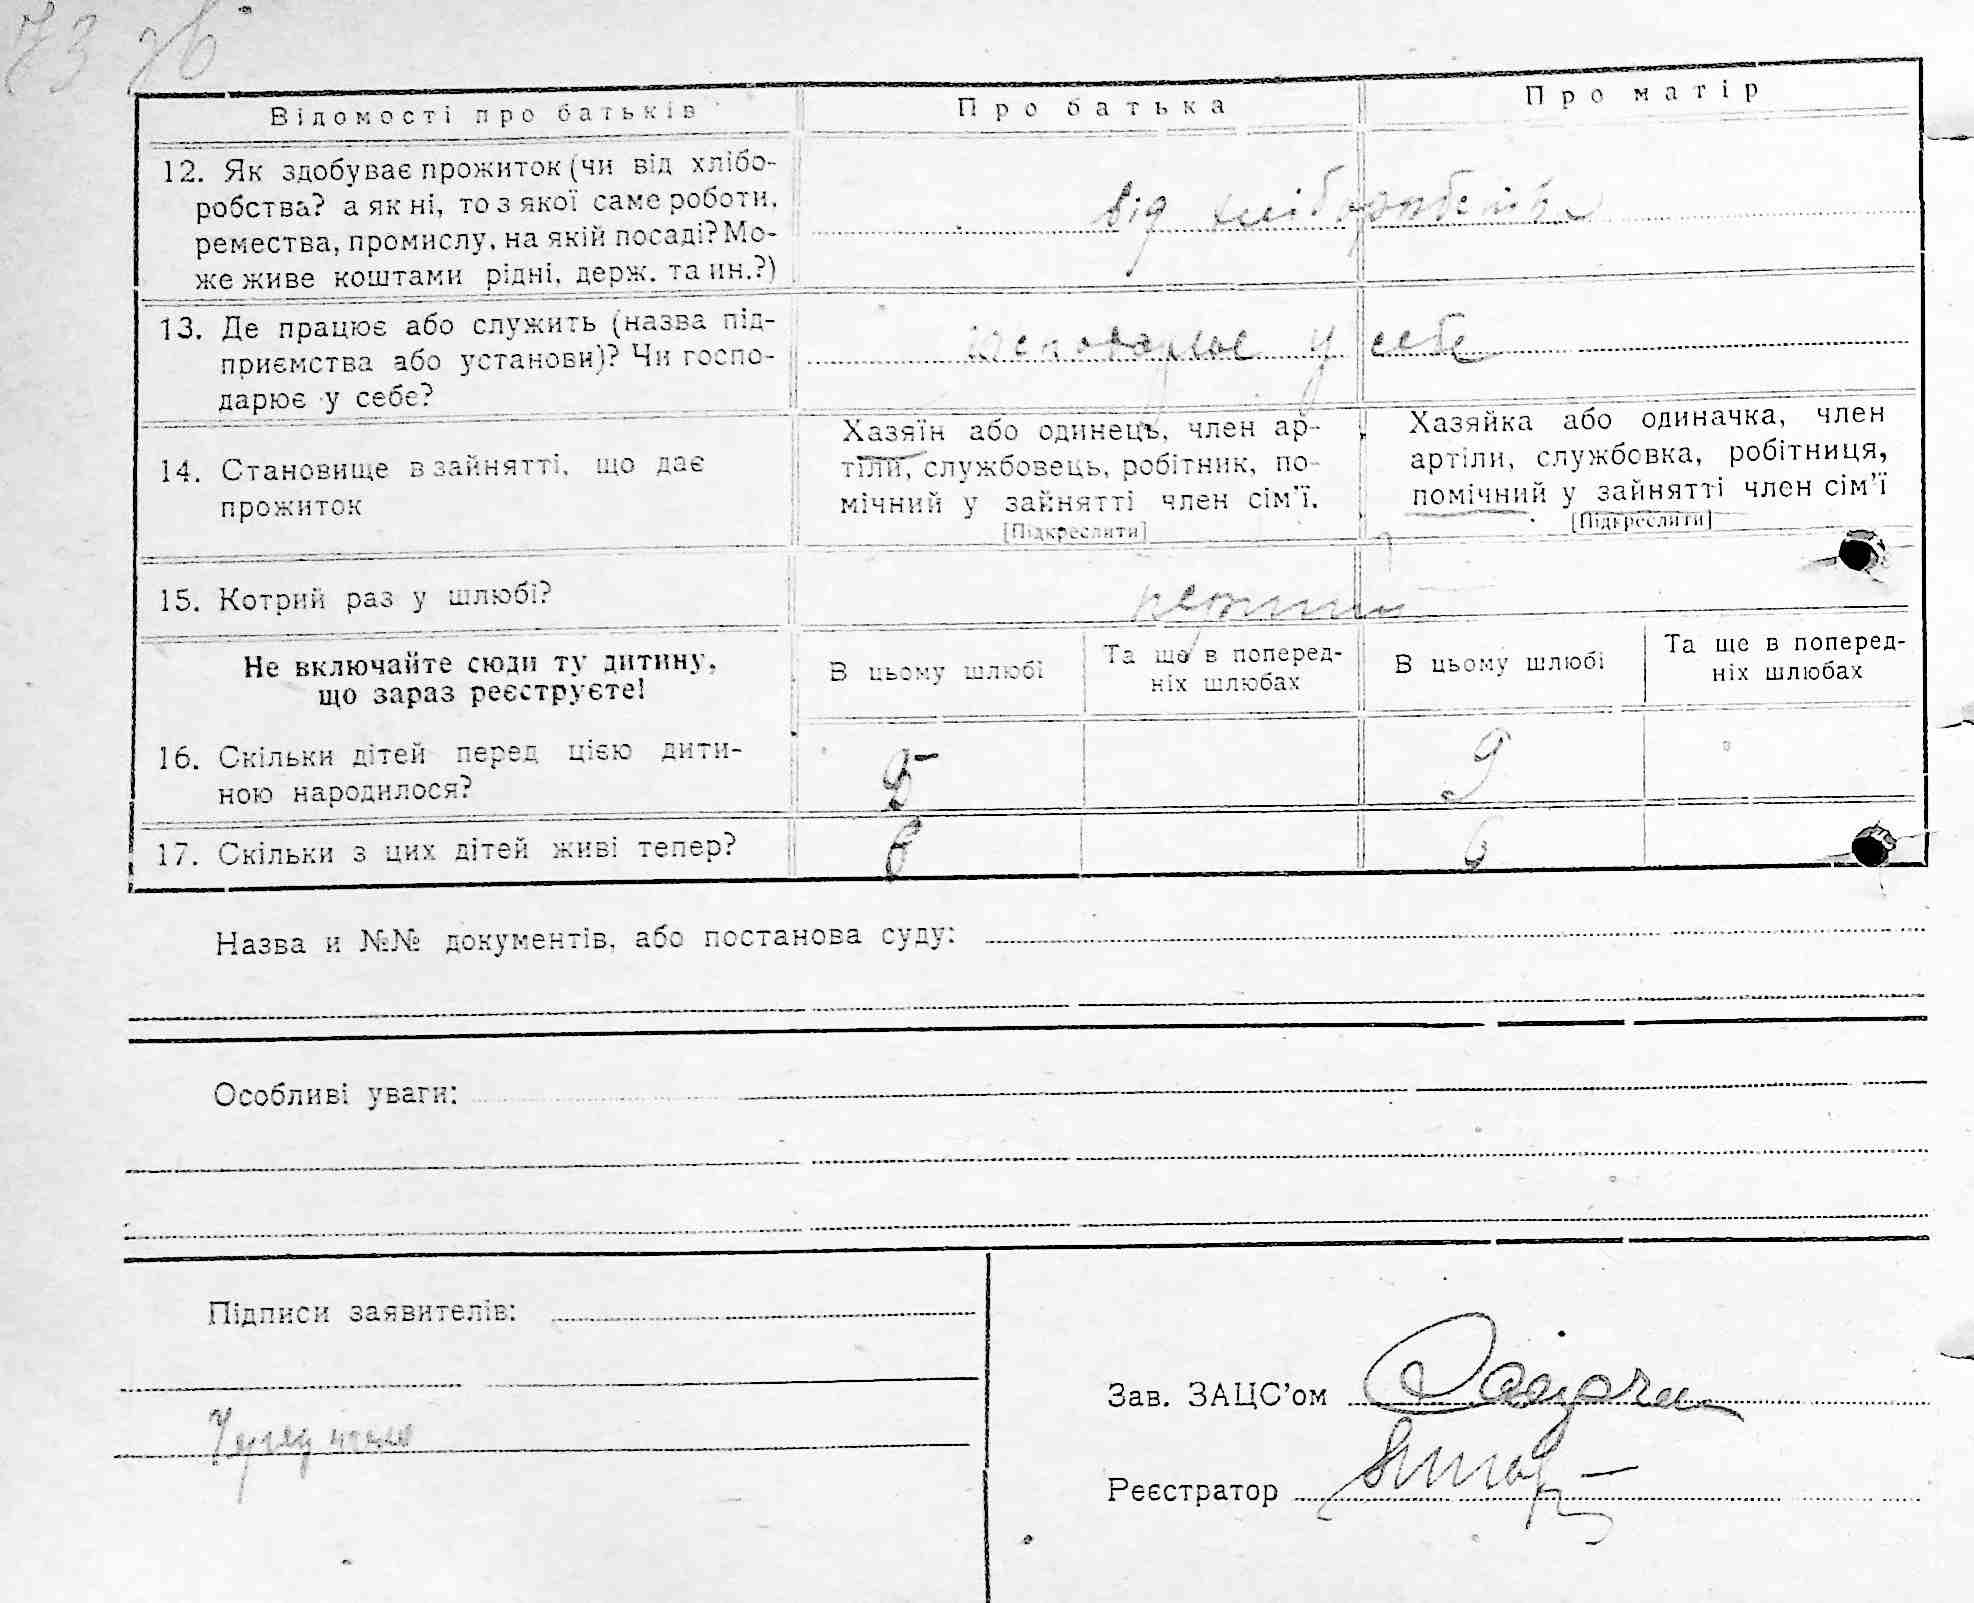 73 зв
Відомості про батьків
Про батька
Про матір
12. Як здобуває прожиток (чи від хлібо-
робства? а як ні, то з якої саме роботи,
ремества, промислу, на якій посаді? Мо-
же живе коштами рідні, держ. та ин.?)
від хліборобства
13. Де працює або служить (назва під-
приємства або установи)? Чи госпо-
дарює у себе?
господарює у себе
14. Становище в зайнятті, що дає
прожиток
Хазяїн або одинець, член ар-
тіли, службовець, робітник, по-
мічний у зайнятті член сім'ї.
[Підкреслити]
Хазяйка або одиначка, член
артіли, службовка, робітниця,
помічний у зайнятті член сім'ї
[Підкреслити]
15. Котрий раз у шлюбі?
Не включайте сюди ту дитину,
що зараз реєструєте!
В цьому шлюбі
Та ще в поперед-
ніх шлюбах
В цьому шлюбі
Та ще в поперед-
ніх шлюбах
16. Скільки дітей перед цією дити-
ною народилося?
9
17. Скільки з цих дітей живі тепер?
6
6
Назва и №№ документів, або постанова суду:
Особливі уваги:
Підписи заявителів:
Зав. ЗАЦС'ом
Реєстратор